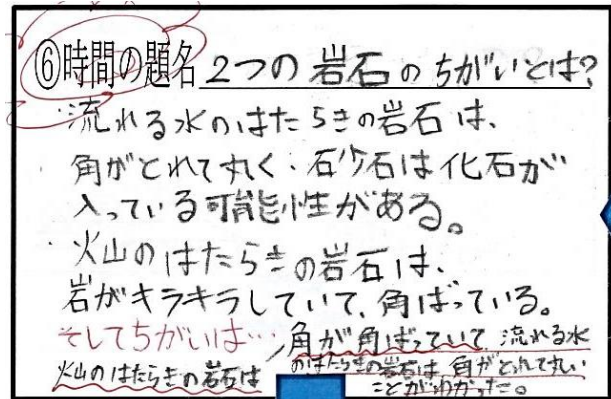 ⑥時間の題名 2つの岩石のちがいとは?
・流れる水のはたらきの岩石は、
角がとれて丸く、石少石は化石が
入っている可能性がある。
・火山のはたらきの岩石は、
岩がキラキラしていて、角ばっている。
そしてちがいは…
火山のはたらきの岩石は
角が角ばっていて 流れる水
のはたらきの岩石は 角がとれて丸い
ことがわかった。